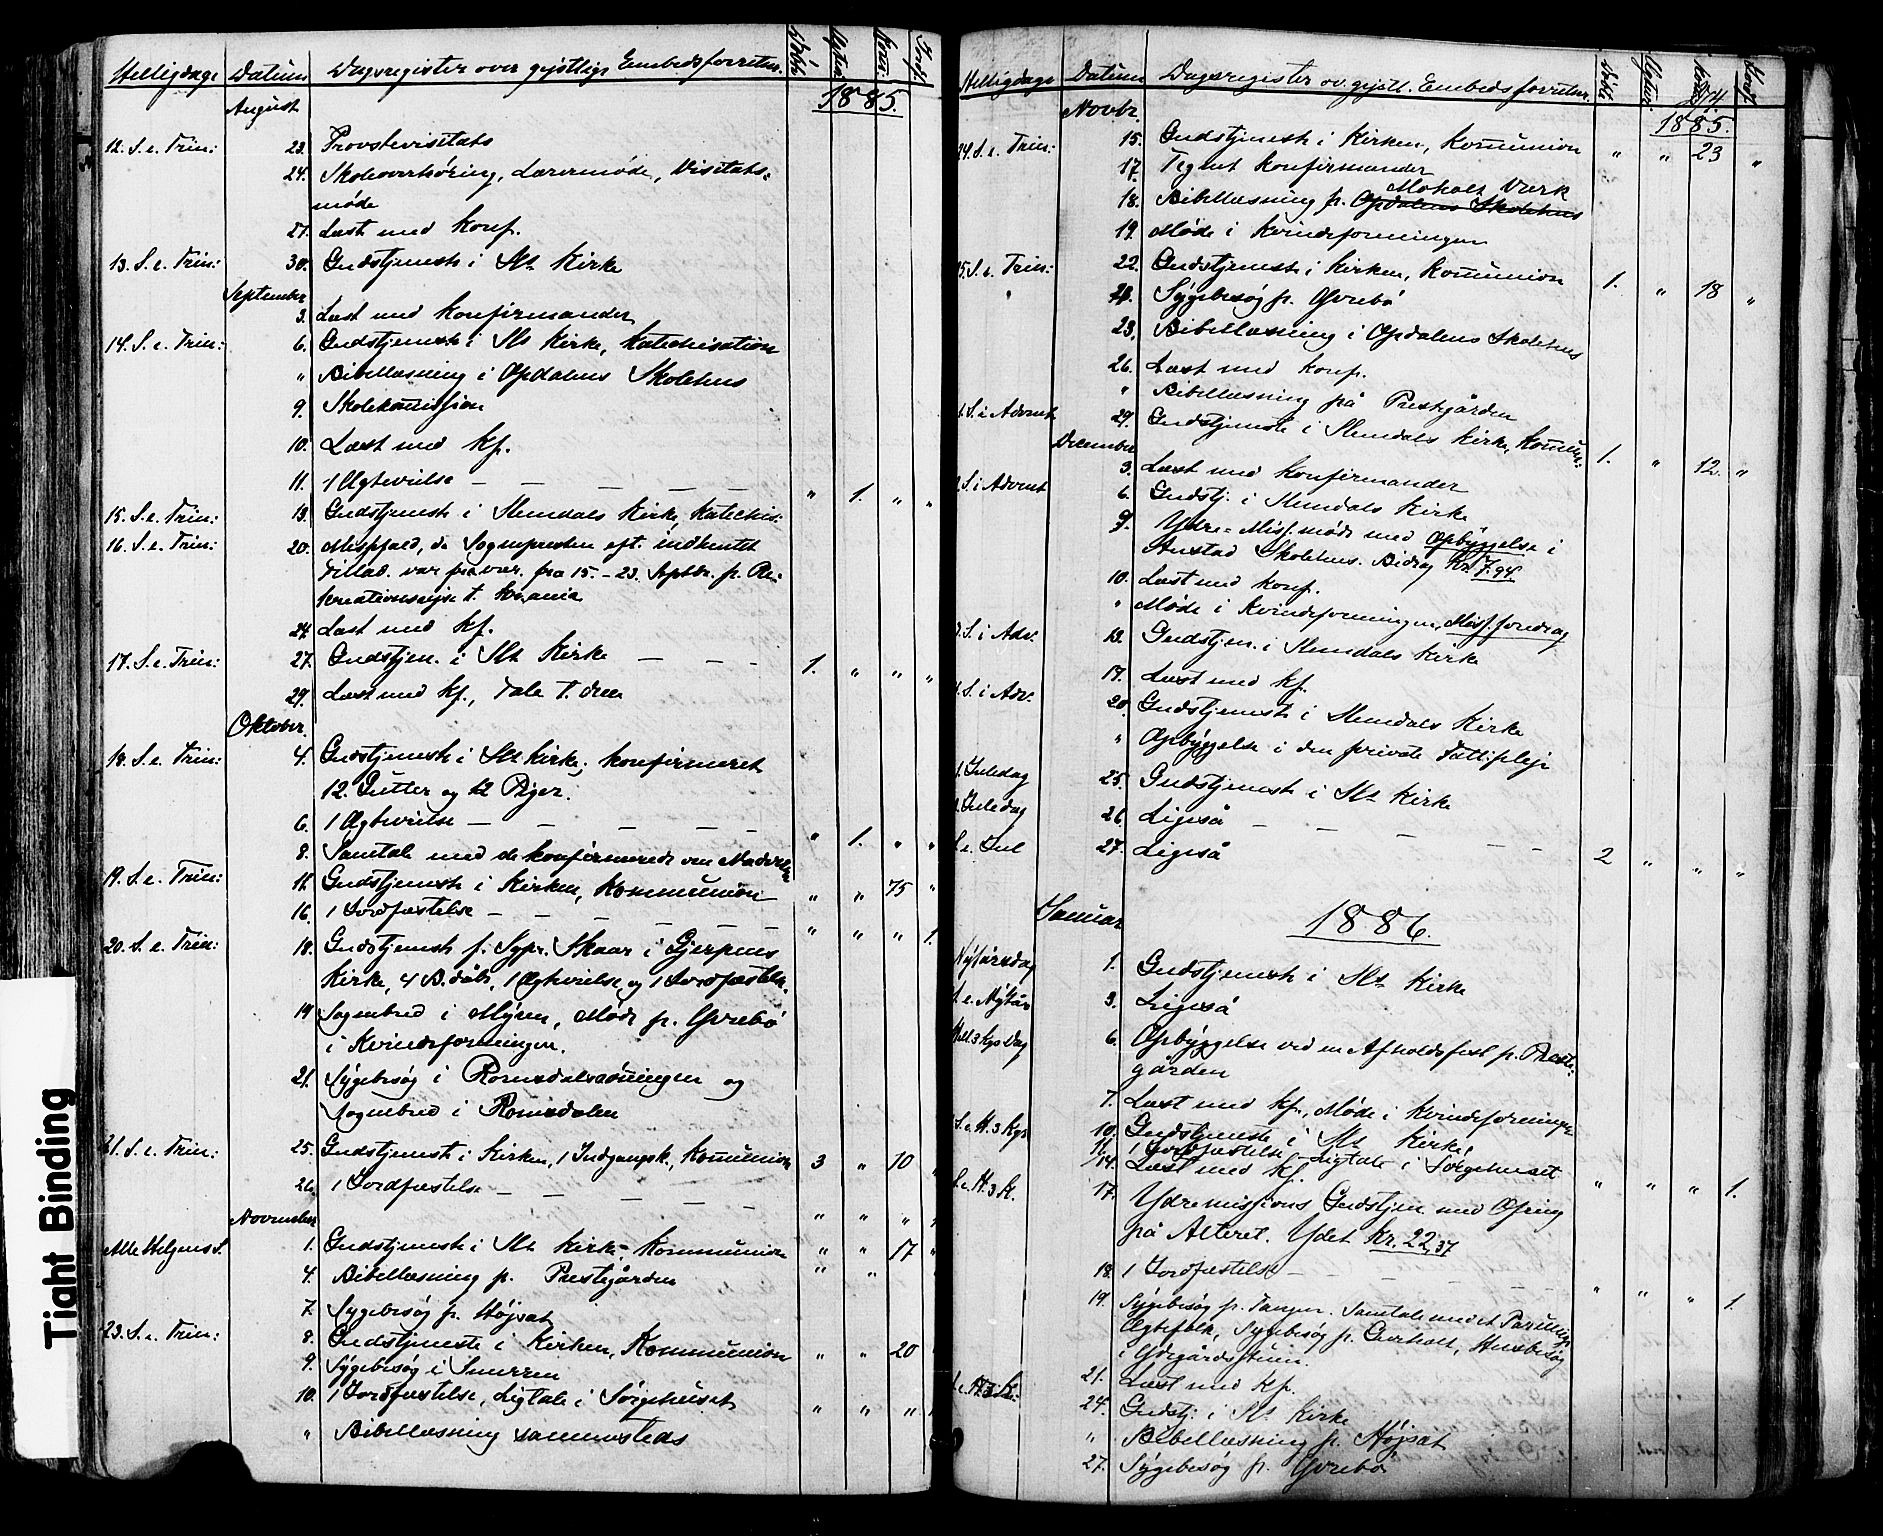 Helligdage Datum Dagsregister over gejstlige Embedsforretn.
August 1885.
12. S. e. Trin: 23. Provstevisitats
24. Skoleoverhøring, Lærermøde, Visitats-
møde
27. Læst med Konf.
13. S. e. Trin: 30. Gudstjeneste i Sl. Kirke
September
3. Læst med Konfirmander
14. S. e. Trin: 6. Gudstjeneste i Sl. Kirke, Katechisation
" Bibellæsning i Opdalens Skolehus
9. Skolekommission
10. Læst med Kf.
11. 1 Ægtevielse — — — — — " 1. " "
15. S. e. Trin: 13. Gudstjeneste i Slemdals Kirke, Katechis:
16. S. e. Trin: 20. Messefald, da Sognepresten eft. indhentet
Tillad. var fravær. fra 15.–23. Septbr. p. Re-
kreationsrejse t. Kr.ania
24. Læst med Kf.
17. S. e. Trin: 27. Gudstjen. i Sl. Kirke — — — 1. " " "
29. Læst med Kf., Tale t. dem
Oktober
18. S. e. Trin: 4. Gudstjeneste i Sl. Kirke; Konfirmeret
12. Gutter og 12 Piger.
6. 1 Ægtevielse — — — — — " 1. " "
8. Samtale med de Konfirmerede om Nadveren
19. S. e. Trin: 11. Gudstjeneste i Kirken, Kommunion " " 75 "
16. 1 Jordfæstelse — — — — " " " 1.
20. S. e. Trin: 18. Gudstjeneste f. Sgpr. Skaar i Gjerpens
Kirke, 4 B. døbt, 1 Ægtevielse og 1 Jordfæstelse.
19 Sognebud i Myren, Møde p. Øvrebø
i Kvindeforeningen.
21. Sygebesøg i Romsdalsaaningen og
Sognebud i Romsdalen
21. S. e. Trin: 25. Gudstjeneste i Kirken, 1 Indgangsk., Kommunion 3 " 10 "
26. 1 Jordfæstelse — — — — — " " "
November
Alle Helgens S. 1. Gudstjeneste i Sl. Kirke, Kommunion " " 17 "
4. Bibellæsning p. Prestegården " "
7. Sygebesøg p. Højsæt
23. S. e. Trin: 8. Gudstjeneste i Kirken, Kommunion " " 20 "
9. Sygebesøg i Snurren
10. 1 Jordfæstelse, Ligtale i Sørgehuset " " "
" Bibellæsning sammesteds
Helligdage Datum Dagsregister ov. gejstl. Embedsforretn.
Novbr. 1885.
24. S. e. Trin: 15. Gudstjeneste i Kirken, Kommunion " " 23 "
17. Tegnet Konfirmander
Moholt Værk
18. Bibellæsning p. Opdalens Skolehus
19. Møde i Kvindeforeningen
25. S. e. Trin: 22. Gudstjeneste i Kirken, Kommunion 1. " 18 "
Sygebesøg p. Øvrebø
23. Bibellæsning i Opdalens Skolehus
26. Læst med Konf.
" Bibellæsning på Prestegården
1. S. i Advent 29. Gudstjeneste i Slemdals Kirke, Kommun: 1. " 12. "
December
3. Læst med Konfirmander
2. S. i Advent 6. Gudstj. i Slemdals Kirke
9. Ydre-Miss.møde med Opbyggelse i
Anstad Skolehus. Bidrag Kr. 7.94
10. Læst med Konf.
" Møde i Kvindeforeningen, Miss.foredrag
3. S. i Adv. 13. Gudstjen. i Slemdals Kirke
17. Læst med Kf.
4. S. i Adv. 20. Gudstjeneste i Slemdals Kirke
" Opbyggelse i den private Fattigpleje
1. Juledag 25. Gudstjeneste i Sl. Kirke
2. Juledag 26. Ligeså — — —
S. e. Jul 27. Ligeså — — 2 " " "
Januar 1886.
Nytårsdag 1. Gudstjeneste i Sl. Kirke
S. e. Nytår 3. Ligeså
Hell. 3 Kgs Dag 6. Opbyggelse ved en Afholdsfest p. Preste-
gården
7. Læst med Kf., Møde i Kvindeforeningen
S. e. H. 3 Kgs 10. Gudstjeneste i Sl. Kirke
11. 1 Jordfæstelse, Ligtale i Sørgehuset
14. Læst med Kf. " " " 1.
S. e. H. 3 K. 17. Ydremissions Gudstjen. med Ofring
på Alteret. Ydet Kr. 22,37
18. 1 Jordfæstelse — — — — " " " 1.
19. Sygebesøg p. Tangen. Samtale med et
Ægtefolk, Sygebesøg p. Husbesøg
i
S. e. H. 3 K: 21. Læst med Kf.
24. Gudstj. i Sl. Kirke
" Bibellæsning p. Højsæt
27. Sygebesøg p. Øvrebø
Tight Binding